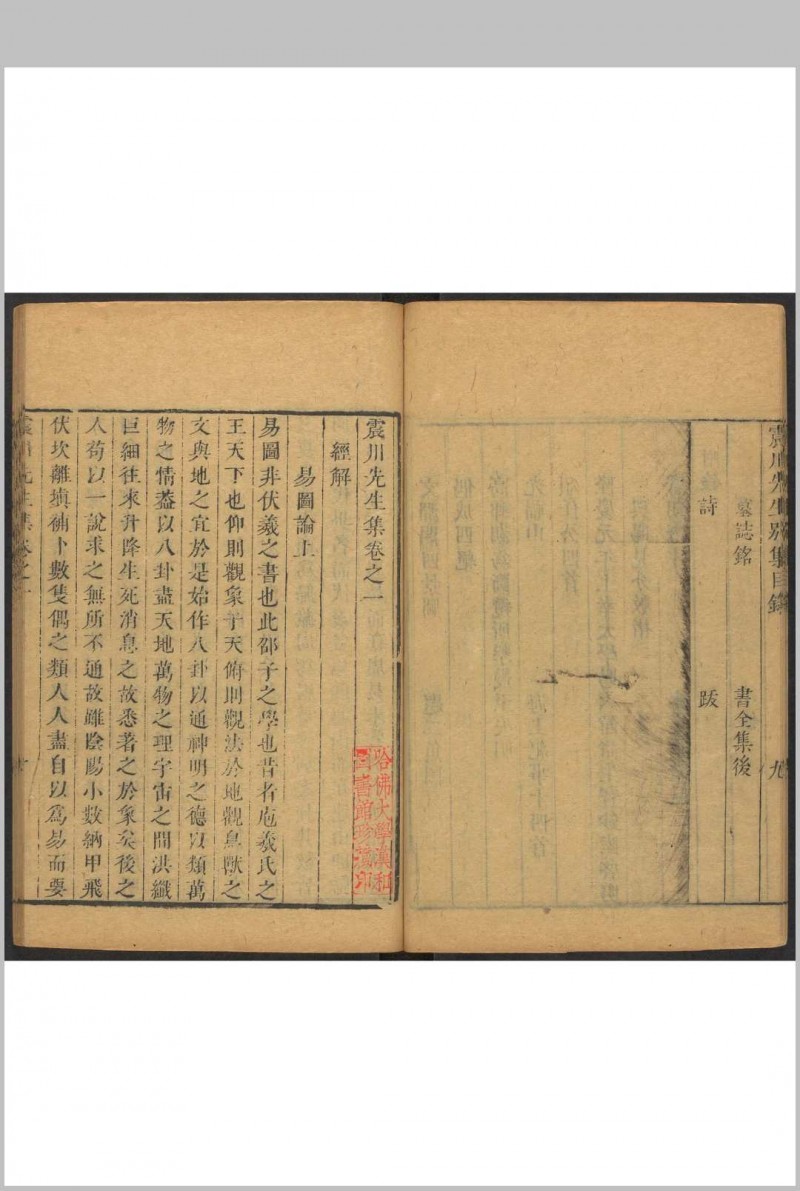 震川先生別集目錄
九
墓誌銘
書全集後
詩
跋
震川先生集卷之一
哈佛大學漢和
圖書館珍藏印
經解
易圖論上
易圖非伏羲之書也此邵子之學也昔者庖羲氏之
王天下也仰則觀象于天俯則觀法於地觀鳥獸之
文與地之宜於是始作八卦以通神明之德以類萬
物之情葢以八卦盡天地萬物之理宇宙之間洪纖
巨細往來升降生死消息之故悉著之於象矣後之
人苟以一說求之無所不通故雖陰陽小數納甲飛
伏坎離塡補卜數隻偶之類人人盡自以爲易而要
震川先生集卷之一